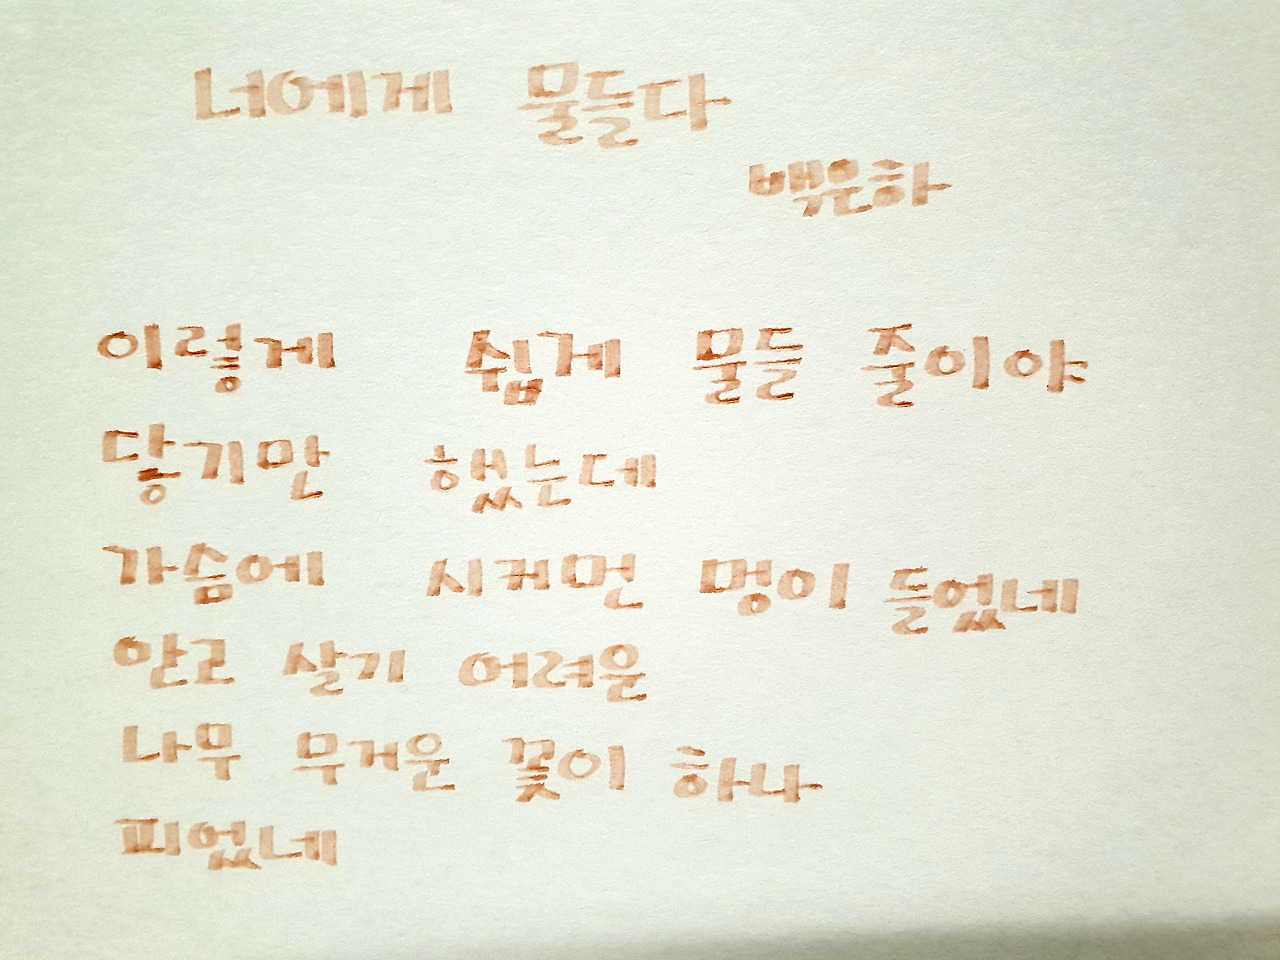 너에게 물들다
백운하
이렇게 쉽게 물들 줄이야
닿기만 했는데
가슴에 시커먼 멍이 들었네
안고 살기 어려운
나무 무거운 꽃이 하나
피었네